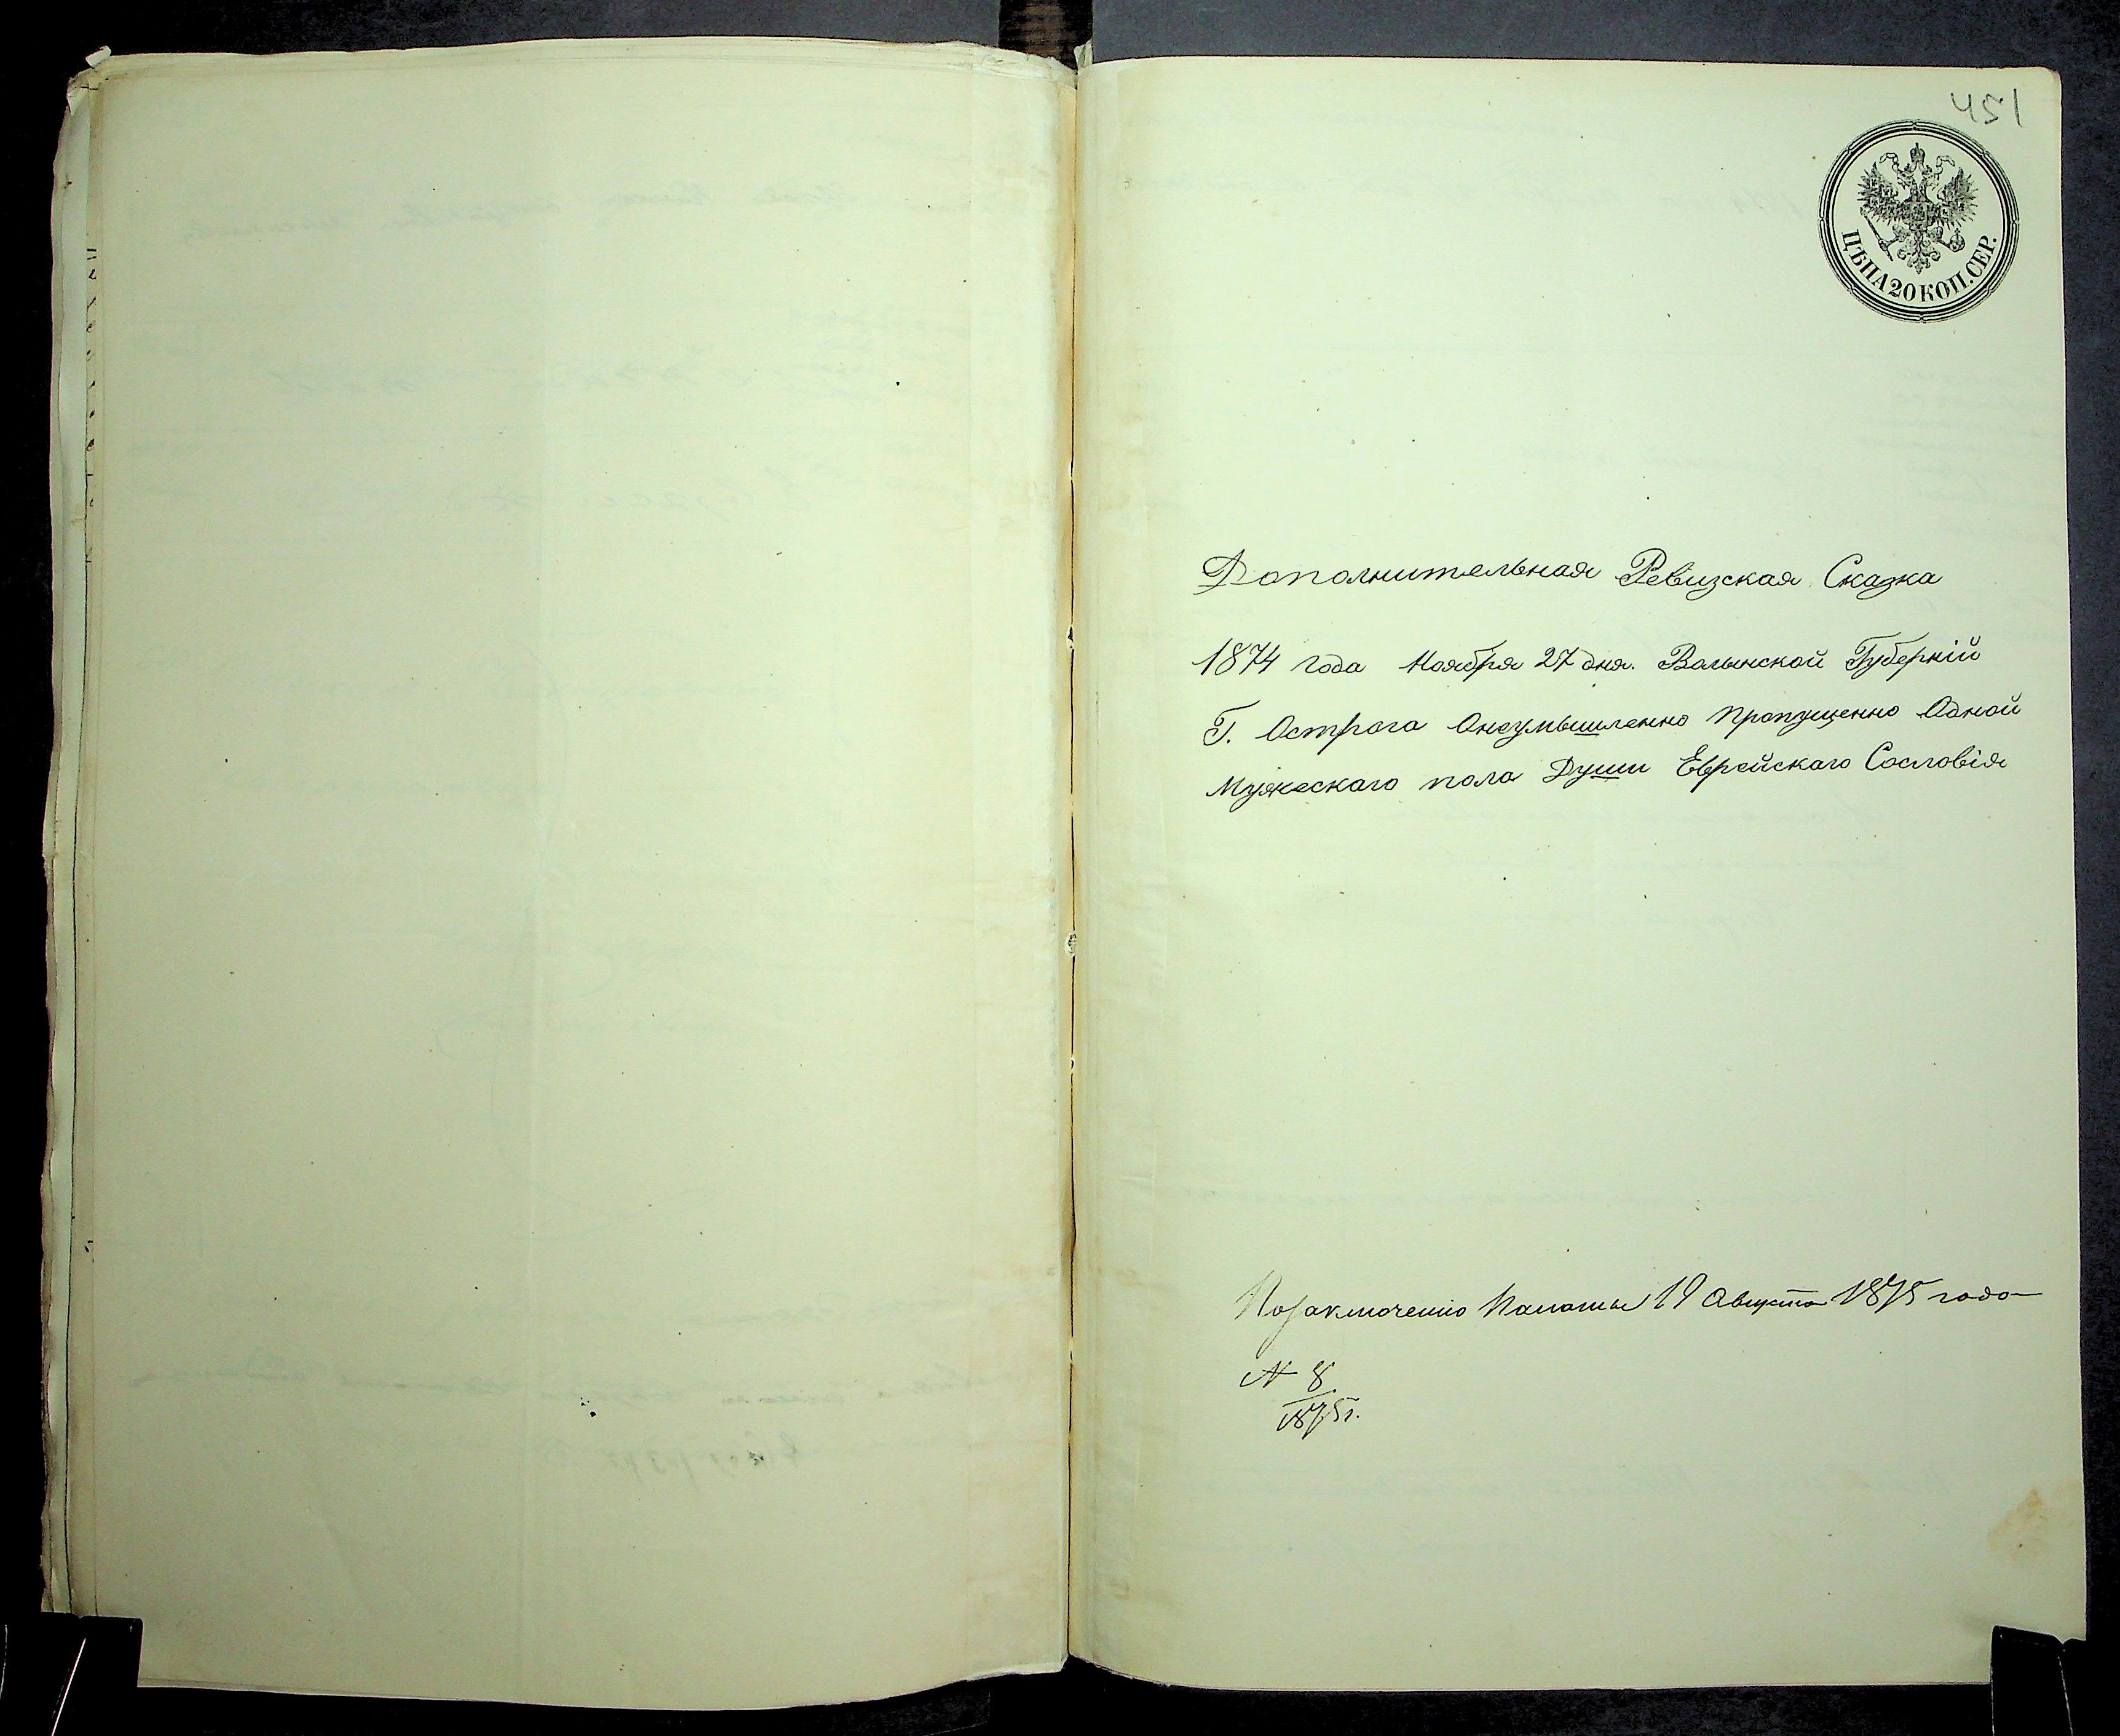 451
ЦѢНА 20 КОП. СЕР.
Дополнительная Ревизская Сказка
1874 года Ноября 27 дня. Волынской Губерніи
Г. Острога Онеумышленно пропущенно Одной
Мужескаго пола Души Еврейскаго Сословія
По заключенію Палаты 19 Августа 1875 года
N 8
1875 г.